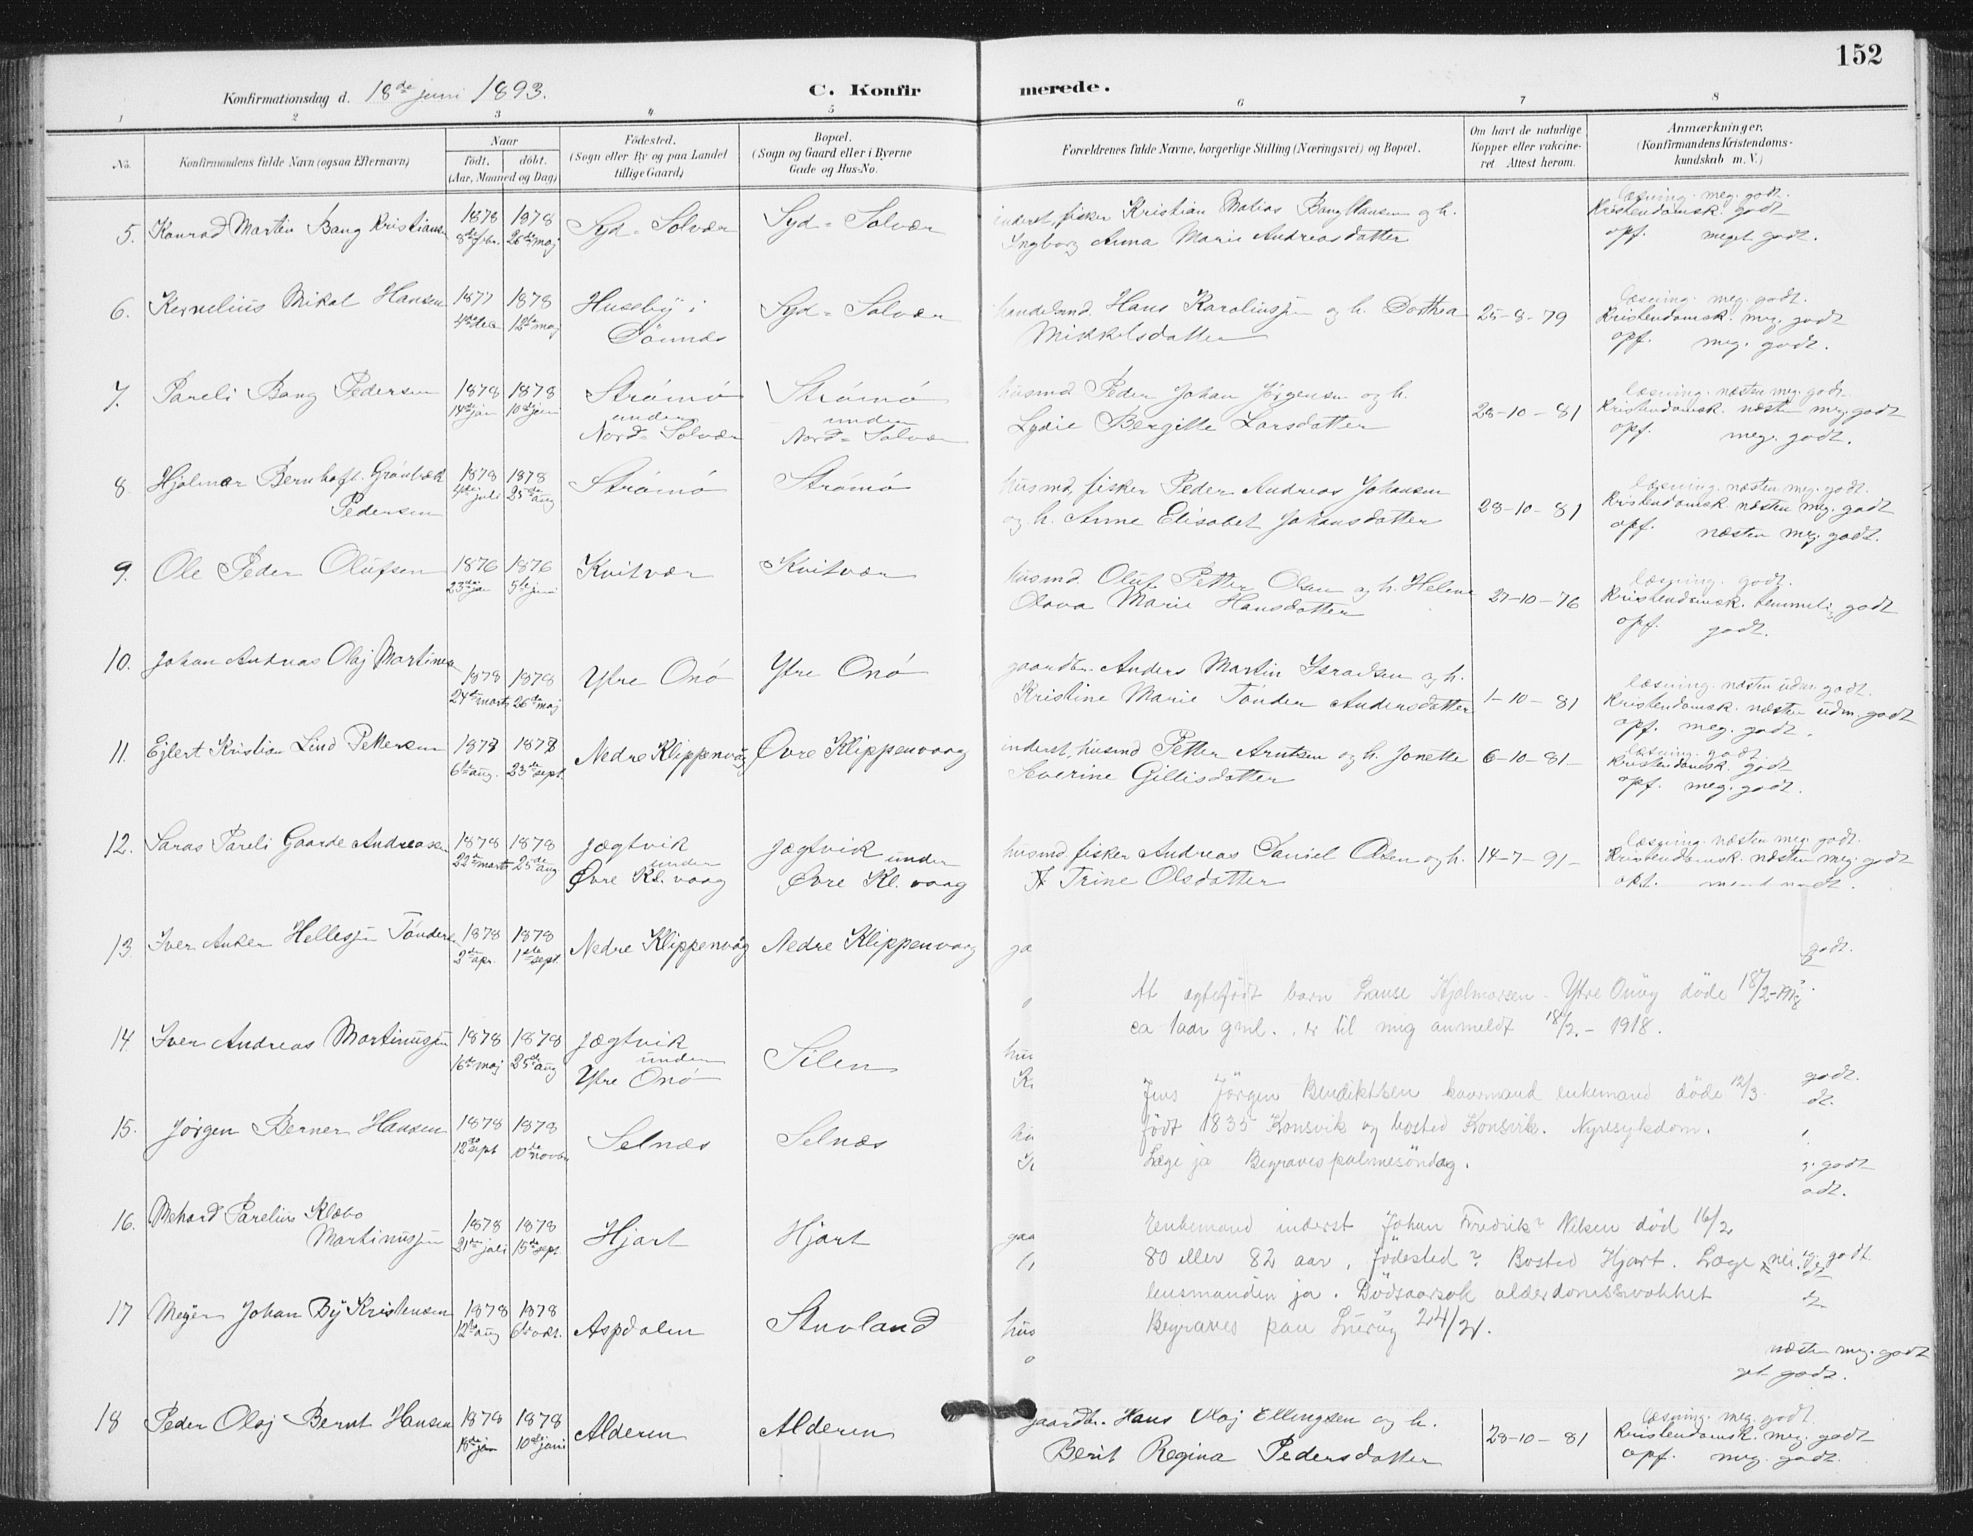 152
Konfirmationsdag d. 18de juni 1893.
C. Konfirmerede.
1 2 3 4 5 6 7 8
No.
Konfirmandens fulde Navn (ogsaa Efternavn)
Naar
født. døbt.
(Aar, Maaned og Dag)
Fødested.
(Sogn eller By og paa Landet
tillige Gaard)
Bopæl.
(Sogn og Gaard eller i Byerne
Gade og Hus-No.
Forældrenes fulde Navne, borgerlige Stilling (Næringsvei) og Bopæl.
Om havt de naturlige
Kopper eller vakcine-
ret Attest herom.
Anmærkninger.
(Konfirmandens Kristendoms-
kundskab m. V.)
5. Konrad Martin Bang Kristiansen
1878 1878
8de febr. 26de maj
Syd-Solvær
Syd-Solvær
inderst, fisker Kristian Matias Bang Hansen og h.
Ingborg Anna Marie Andreasdatter
læsning. meg. godt.
Kristendomsk. godt
opf. meget godt.
6. Kornelius Mikal Hansen
1877 1878
4de dec 12te maj
Huseby i
Dønnæs
Syd-Solvær
handelsmd. Hans Karoliussen og h. Dorthea
Mikkelsdatter
25-8-79
læsning. meg. godt.
Kristendomsk. meg. godt
opf. meg. godt.
7. Pareli Bang Pedersen
1878 1878
14de jan 10de juni
Strømø
under
Nord-Solvær
Strømø
under
Nord-Solvær
husmd Peder Johan Jørgensen og h.
Lydie Bergitte Larsdatter
28-10-81
læsning. næsten meg. godt.
Kristendomsk. næsten meg. godt
opf. meg. godt.
8. Hjalmar Bernhoft Grønbæk
Pedersen
1878 1878
juli 25de aug
Strømø
Strømø
husmd, fisker Peder Andreas Johansen
og h. Anne Elisabet Johansdatter
28-10-81
læsning. næsten meg. godt.
Kristendomsk. næsten meg. godt
opf. næsten meg. godt.
9. Ole Peder Olufsen
1876 1876
23de jan 5te juni
Kvitvær
Kvitvær
husmd. Oluf Petter Olsen og h. Helene
Olava Marie Hansdatter
27-10-76
læsning. godt.
Kristendomsk. temmelig godt
opf. godt.
10. Johan Andreas Olaj Martinus
1878 1878
24de marts 26de maj
Ytre Onø
Ytre Onø
gaardbr. Anders Martin Israelsen og h.
Kristine Marie Tønder Andersdatter
1-10-81
læsning. næsten udm. godt.
Kristendomsk. næsten udm. godt
opf. meg. godt.
11. Ejlert Kristian Lind Pettersen
1877 1877
6te aug. 23de sept.
Nedre Klippenvåg
Øvre Klippenvaag
inderst, husmd Petter Arntsen og h. Jonette
Severine Gillisdatter
6-10-81-
læsning. godt.
Kristendomsk. godt
opf. meg. godt.
12. Saras Pareli Gaarde Andreasen
1878 1878
22de marts 25de aug
Jægtvik
under
Øvre Kl. vaag
Jægtvik
under
Øvre Kl. vaag
husmd, fisker Andreas Daniel Olsen og h.
A Trine Olsdatter
14-7-91-
læsning. næsten meg. godt.
Kristendomsk. næsten meg. godt
opf. meget godt.
13. Iver Anker Hellesen Tønder
1878 1878
apr. 1ste sept.
Nedre Klippenvåg
Nedre Klippenvaag
ga
godt.
At ægtefødt barn Hjalmarsen. Ytre Onøy døde 18/2-1918
ca 1 aar gml. er til mig anmeldt 18/2.-1918.
14. Iver Andreas Martinussen
1878 1878
16de maj 25de aug
Jægtvik
under
Ytre Onø
Silen
hus
K
godt.
dt.
Jens Jørgen Bendiktsen kaarmand enkemand døde 12/3.
født 1835 Konsvik og bosted Konsvik. Nyresykdom.
Læge ja Begraves palmesøndag.
15. Jørgen Berner Hansen
1878 1878
18de sept 10de novbr
Selnæs
Selnæs
godt
odt.
16. Mehard Parelius Klæbo
Martinussen
1878 1878
21de juli 15de sept
Hjart
Hjart
gaa
Enkemand inderst Johan Fredrik? Nilsen død 16/2
80 eller 82 aar, fødested? Bosted Hjart. Læge nei.
lensmanden ja. Dødsaarsak alderdomssvakhet
Begraves paa Lurøy 24/2.
godt.
17 Meyer Johan By Kristensen
1878 1878
12te aug 6te okt.
Aspdalen
Stuvland
hus
o
næsten meg. godt
get godt.
18 Peder Olaj Bernt Hansen
1878 1878
jan 10de juni
Alderen
Alderen
gaardbr. Hans Olaj Ellingsen og h.
Berit Regina Pedersdatter
28-10-81
læsning. meg. godt.
Kristendomsk. meg. godt
opf. meg. godt.